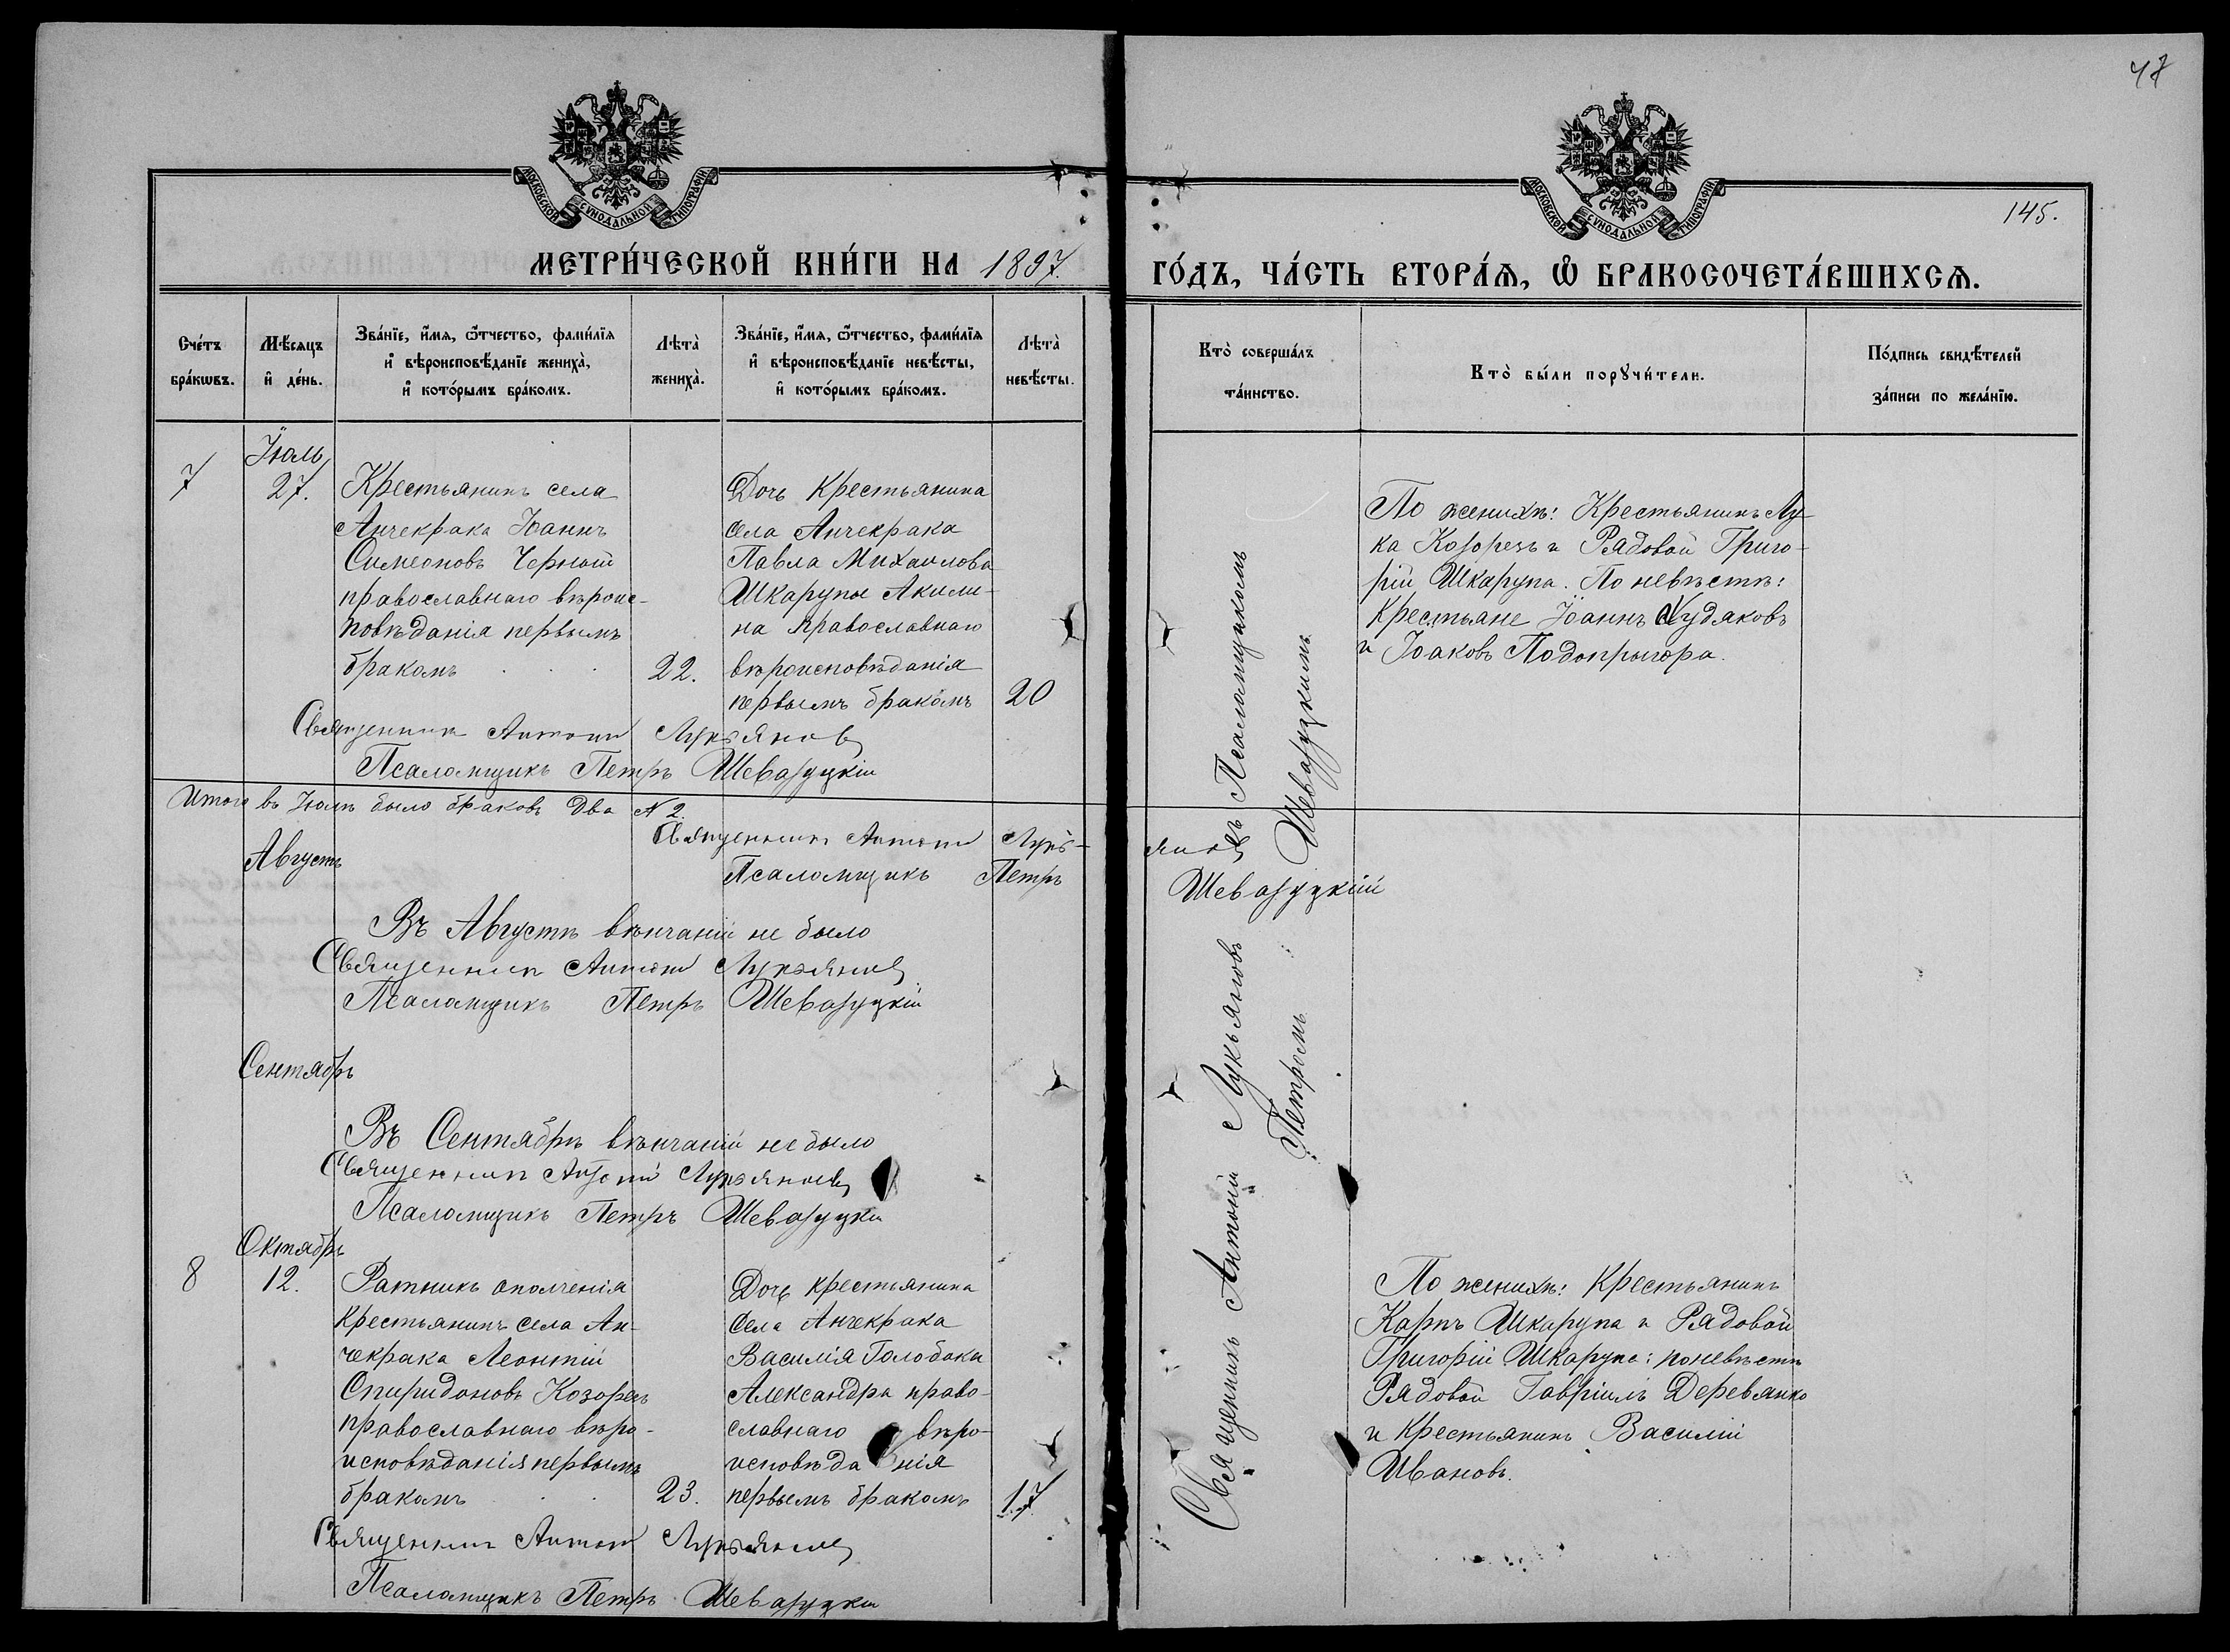 47
МОСКОВСКОЙ СУНОДАЛЬНОЙ ТИПОГРАФІИ
МОСКОВСКОЙ СУНОДАЛЬНОЙ ТИПОГРАФІИ
145.
МЕТРИ́ЧЕСКОЙ КНИ́ГИ НА 1897.
ГО́ДЪ, ЧА́СТЬ ВТОРА́Ѧ, Ѡ҆ БРАКОСОЧЕТА́ВШИХСѦ.
Сче́тъ бра́кѡвъ.
Мѣ́сяцъ и҆ де́нь.
Зва́нїе, и҆́мя, ѻ҆́тчество, фами́лїя и҆ вѣроисповѣ́данїе жениха̀, и҆ кото́рымъ бра́комъ.
Лѣта̀ жениха̀.
Зва́нїе, и҆́мя, ѻ҆́тчество, фами́лїя и҆ вѣроисповѣ́данїе невѣ́сты, и҆ кото́рымъ бра́комъ.
Лѣта̀ невѣ́сты.
Кто̀ соверша́лъ та́инство.
Кто̀ бы́ли порꙋчи́тели.
По́дпись свидѣ́телей за́писи по жела́нїю.
7
Іюль
27.
Крестьянинъ села
Анчекрака Іоаннъ
Симеоновъ Черный
православнаго вѣроис-
повѣданія первымъ
бракомъ . . .
22.
Дочь Крестьянина
села Анчекрака
Павла Михаилова
Шкарупы Акили-
на православнаго
вѣроисповѣданія
первымъ бракомъ
20
По женихѣ: Крестьянинъ Лу-
ка Козорезъ и Рядовой Григо-
рій Шкарупа. По невѣстѣ:
Крестьяне Іоаннъ Худяковъ
и Іоаковъ Подопрыгора.
Священникъ Антоній Лукьяновъ
Псаломщикъ Петръ Шевазуцкій
Итого въ Іюлѣ было браковъ два № 2.
Священникъ Антоній Лукь-
яновъ
Псаломщикъ Петръ
Шевазуцкій
Августъ
Въ Августѣ вѣнчаній не было
Священникъ Антоній Лукьяновъ
Псаломщикъ Петръ Шевазуцкій
Сентябрь
Въ Сентябрѣ вѣнчаній не было
Священникъ Антоній Лукьяновъ
Псаломщикъ Петръ Шевазуцкій
Октябрь
8
12.
Ратникъ ополченія
Крестьянинъ села Ан-
чекрака Леонтій
Спиридоновъ Козорезъ
православнаго вѣро-
исповѣданія первымъ
бракомъ . .
23.
Дочь крестьянина
села Анчекрака
Василія Голобока
Александра право-
славнаго вѣро-
исповѣданія
первымъ бракомъ
17
По женихѣ: Крестьянинъ
Карпъ Шкарупа и Рядовой
Григорій Шкарупа: по невѣстѣ
Рядовой Гавріилъ Деревянко
и Крестьянинъ Василій
Ивановъ.
Священникъ Антоній Лукьяновъ
Псаломщикъ Петръ Шевазуцкій
Священникъ Антоній Лукьяновъ съ Псаломщикомъ
Петромъ Шевазуцкимъ